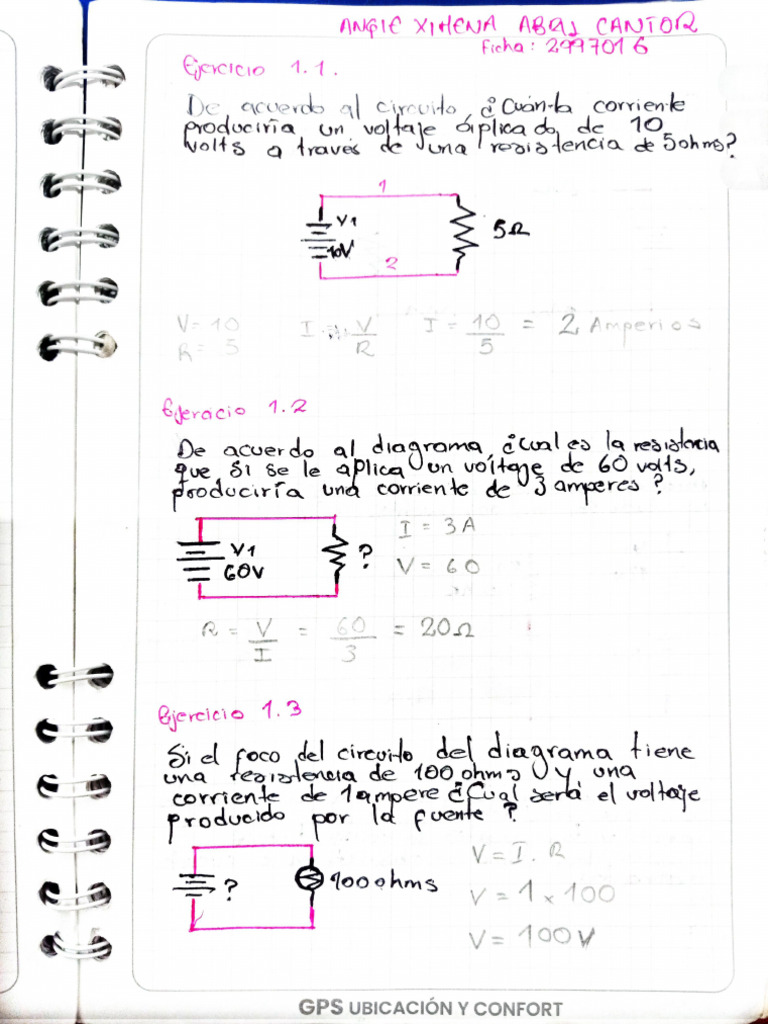 ANGIE XIMENA ABRIL CANTOR
Ficha: 2997016
Ejercicio 1.1.
De acuerdo al circuito ¿Cuánta corriente
produciría un voltaje aplicado de 10
volts a través de una resistencia de 5 ohms?
1
V1
10V
5Ω
2
V = 10
R = 5
I = V/R
I = 10/5 = 2 Amperios
Ejercicio 1.2
De acuerdo al diagrama, ¿Cual es la resistencia
que si se le aplica un voltaje de 60 volts,
produciría una corriente de 3 amperes?
V1
60V
?
I = 3A
V = 60
R = V/I = 60/3 = 20Ω
Ejercicio 1.3
Si el foco del circuito del diagrama tiene
una resistencia de 100 ohms y una
corriente de 1 ampere ¿Cual será el voltaje
producido por la fuente?
?
100 ohms
V = I . R
V = 1 x 100
V = 100V
GPS UBICACIÓN Y CONFORT